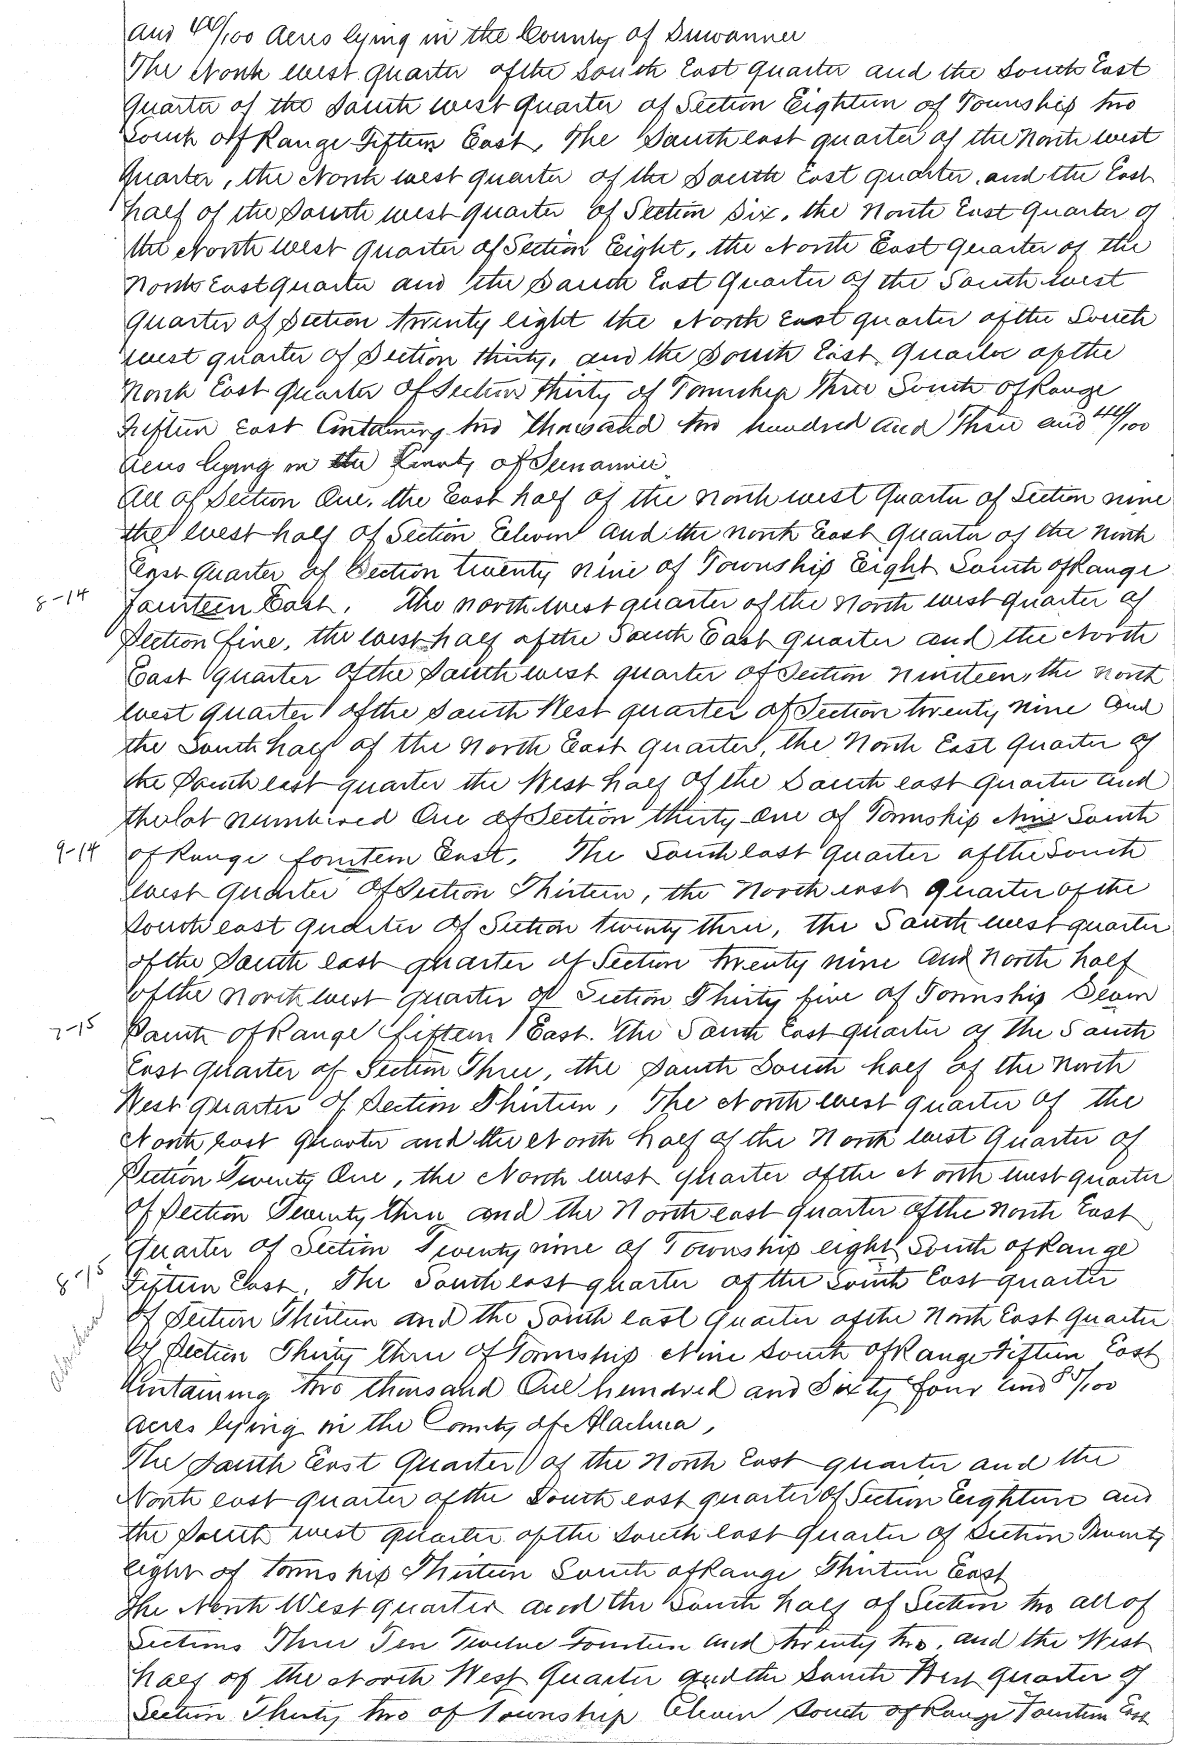 and 40/100 Acres lying in the County of Suwannee
The North west quarter of the South East quarter and the South East
Quarter of the South west quarter of Section Eighteen of Township two
South of Range Fifteen East, The South east quarter of the North west
Quarter, the North west quarter of the South East quarter, and the East
half of the South west quarter of Section Six, the North East Quarter of
the North west quarter of Section Eight, the North East Quarter of the
North East quarter and the South East Quarter of the South west
Quarter of Section twenty eight the North East quarter of the South
west quarter of Section thirty, and the South East Quarter of the
North East Quarter of Section thirty of Township Three South of Range
Fifteen East Containing two thousand two hundred and Three and 44/100
acres lying in the County of Suwannee
All of Section One, the East half of the North west Quarter of Section nine
the west half of Section Eleven and the north East Quarter of the North
East Quarter of Section twenty nine of Township Eight South of Range
8-14
fourteen East. The north west quarter of the North west quarter of
Section five, the west half of the South East quarter and the North
East quarter of the South west quarter of Section nineteen, the north
west quarter of the South West quarter of Section twenty nine and
the South half of the North East quarter, the North East Quarter of
the South east quarter the West half of the South east quarter and
the lot numbered One of Section thirty-one of Township Nine South
9-14
of Range fourteen East. The South east quarter of the South
west quarter of Section Thirteen, the North east quarter of the
South east quarter of Section twenty three, the South west quarter
of the South east quarter of Section twenty nine and North half
of the North west quarter of Section Thirty five of Township Seven
7-15
South of Range fifteen East. The South East quarter of the South
East quarter of Section Three, the South South half of the North
West quarter of Section Thirteen, The North west quarter of the
North east quarter and the North half of the North west Quarter of
Section Twenty One, the North west quarter of the North west quarter
of Section Twenty three and the North east quarter of the North East
Quarter of Section Twenty nine of Township eight South of Range
8-15
Fifteen East. The South east quarter of the South East quarter
Alachua
of Section Thirteen and the South east Quarter of the North East Quarter
of Section Thirty three of Township Nine South of Range Fifteen East
Containing two thousand One hundred and Sixty four and 85/100
acres lying in the County of Alachua,
The South East Quarter of the North East quarter and the
North east quarter of the South east quarter of Section Eighteen and
the South west quarter of the South east quarter of Section Twenty
eight of township Thirteen South of Range Thirteen East
The North West quarter and the South half of Section two all of
Sections Three Ten Twelve Fourteen and twenty two, and the West
half of the North West Quarter and the South West quarter of
Section Thirty two of Township Eleven South of Range Fourteen East